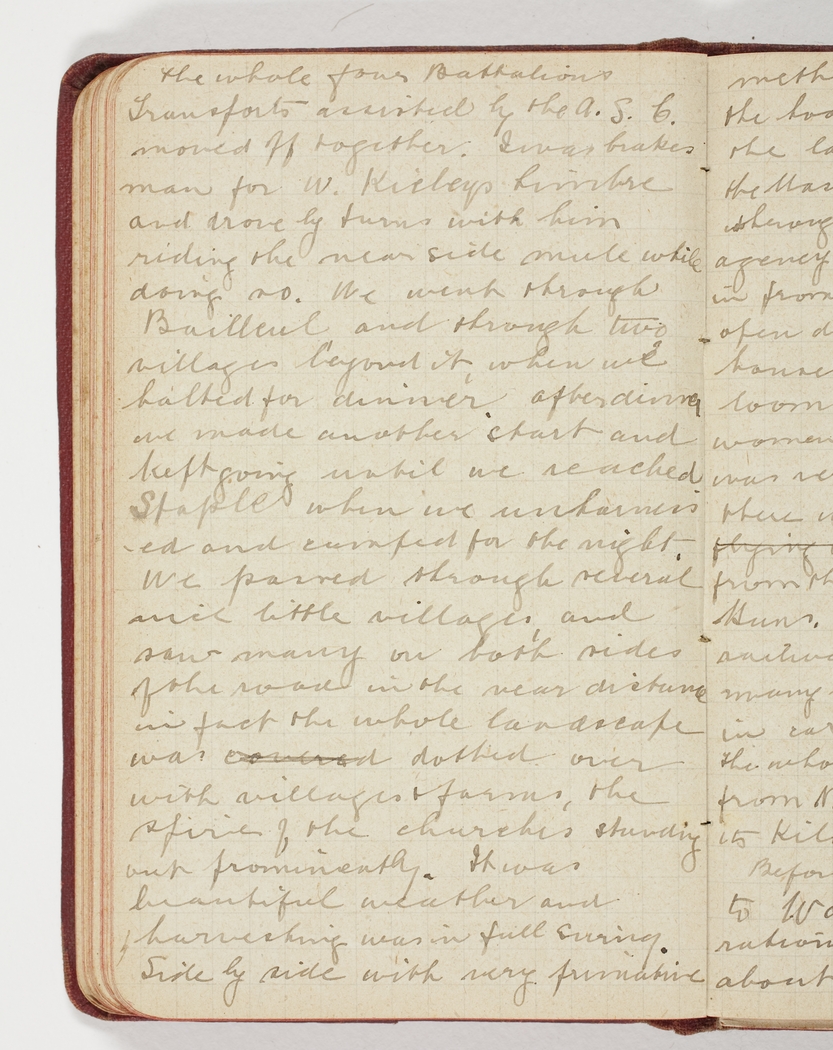 the whole four Battalions
Transports assisted by the A. S. C.
moved off together. I was brakes
man for W. Kieleys limbre
and drove by turns with him
riding the near side mule while
doing so. We went through
Bailleul and through two
villages beyond it, when we
halted for dinner after dinner
we made another start and
kept going until we reached
Staple when we unharness
-ed and camped for the night.
We passed through several
nice little villages, and
saw many on both sides
of the road in the near distance
in fact the whole landscape
was covered dotted over
with villages & farms, the
spires of the churches standing
out prominently. It was
beautiful weather and
harvesting was in full swing.
Side by side with very primative
meth
the hoo
the la
the Mas
throug
agency
in from
open d
house
loom
women
was ve
there w
flying
from th
Huns.
many
in ear
the who
from N
its Kil
Befor
to Wa
ration
about